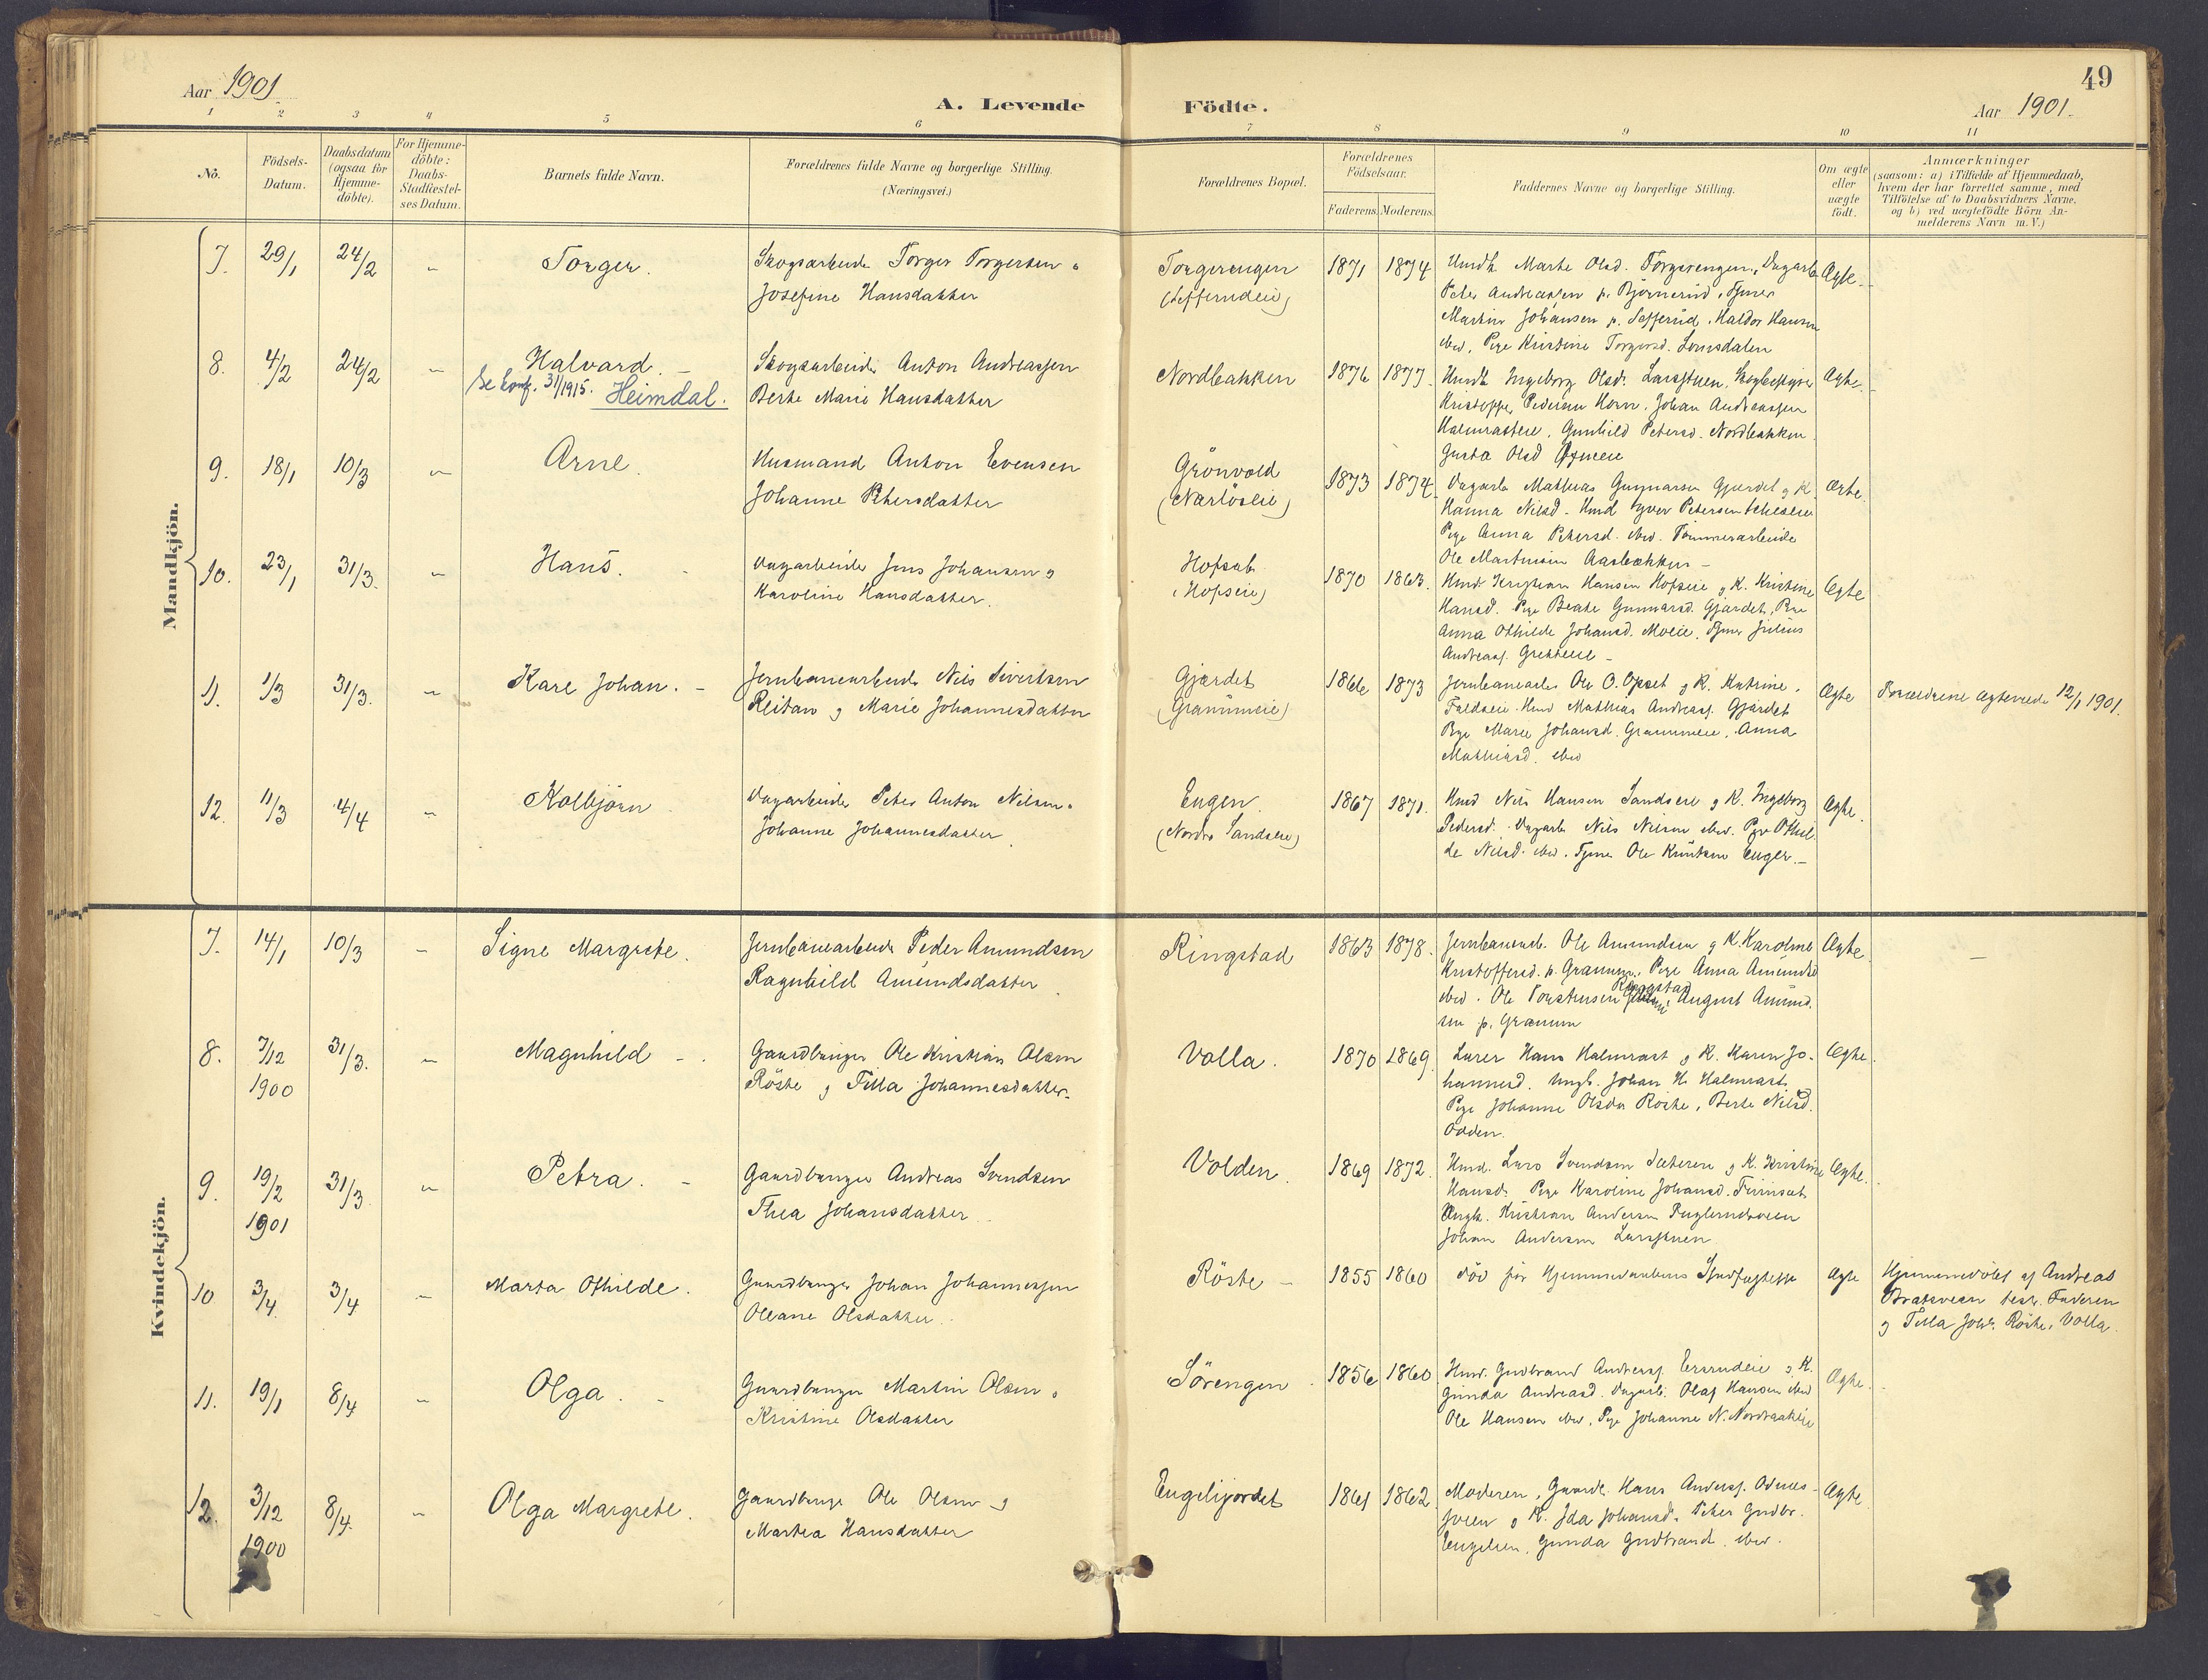 49
Aar 1901.
A. Levende Födte.
Aar 1901.
1 2 3 4 5 6 7 8 9 10 11
No.
Födsels-
Datum.
Daabsdatum
(ogsaa for
Hjemme-
döbte).
For Hjemme-
döbte:
Daabs-
Stadfæstel-
ses Datum.
Barnets fulde Navn.
Forældrenes fulde Navne og borgerlige Stilling.
(Næringsvei.)
Forældrenes Bopæl.
Forældrenes
Födselsaar.
Faderens. Moderens.
Faddernes Navne og borgerlige Stilling.
Om ægte
eller
uægte
födt.
Anmærkninger
(saasom: a) i Tilfælde af Hjemmedaab,
hvem der har forrettet samme, med
Tilföielse af to Daabsvidners Navne,
og b) ved uægtefödte Börn An-
melderens Navn m. V.)
Mandkjön.
7. 29/1 24/2 - Torger.
Skogsarbeider Torger Torgersen
Josefine Hansdatter
Torgerengen
1871 1874
Marte Olsd. Torgerengen
Peter Andreassen p. Björnerud, Tjener
Martin Johansen p. Sefferud, Haldor Hansen
ibid, Pige Kristine Torgersd. Lomsdalen
Ægte
8. 4/2 24/2 - Halvard. -
Se konf. 31/1915. Heimdal.
Skogsarbeider Anton Andreassen
Berte Marie Hansdatter
Nordbakken
1876 1877.
Ingeborg Olsd. Larsstuen
Kristoffer Pedersen Horn, Johan Andreassen
Gunhild Petersd. Nordbakken
Gusta Olsd
Ægte.
9. 18/1 10/3 - Arne
Husmand Anton Evensen
Johanne Petersdatter
Grönvold
1873 1874.
Dagarb Mathias Gunnarsen Gjærdet og K.
Hanna Nilsd. Petersen
Pige Anna Petersd. ibid. Tömmerarbeider
Ole Martinsen Aasbakken -
Ægte.
10. 23/1 31/3. - Hans.
Dagarbeider Jens Johansen og
Karoline Hansdatter.
(Hofseie)
1870 1863.
Hansen Hofseie og K. Kristine
Hansd. Pige Beate Gunnarsd. Gjærdet, Pige
Anna Othilde Johansd. Moeie, Tjener Julius
Andreass.
Ægte
11. 1/3 31/3. - Karl Johan. -
Jernbanearbeider Nils Sivertsen
Reitan og Marie Johannesdatter
Gjærdet
(Granumeie)
1866 1873
Jernbanearb. Ole O. Opset og K. Katrine
Mathias Andreass. Gjærdet
Pige Marie Johansd. Granumeie, Anna
Mathiasd. ibid
Ægte
Forældrene ægteviede 12/1 1901.
12. 11/3 4/4 - Kolbjörn
Dagarbeider Peter Anton Nilsen
Johanne Johannesdatter.
Engen.
(Nordre Sandseie)
1867 1871.
Nils Hansen Sandseie og K. Ingeborg
Pedersd. Dagarb Nils Nilsen ibid. Pige Othil-
de Nilsd. ibid. Tjener Ole Knutsen Enger. -
Ægte.
Kvindekjön.
7. 14/1 10/3 - Signe Margrete.
Jernbanearbeider Peder Amundsen
Ragnhild Amundsdatter
Ringstad
1863 1878.
Jernbanearb. Ole Amundsen og K. Karoline
Kristoffersd. p. Granum, Pige Anna Amundsd
ibid. Ole Torstensen Ringstad August Amund-
sen p. Granum
Ægte.
-
8. 7/12 31/3. - Magnhild -
1900
Gaardbruger Ole Kristian Olsen
Röste og Tilla Johannesdatter.
Volla.
1870 1869.
Lærer Hans Halmrast og K. Karen Jo-
hannesd. Ungk. Johan H. Halmrast
Pige Johanne Olsdr Röste, Berte Nilsd.
Odden.
Ægte.
9. 19/2 31/3 - Petra. -
1901
Gaardbruger Andreas Svendsen
Thea Johansdatter
Volden.
1869 1872.
Lars Svendsen Sæteren og K. Kristine
Hansd. Pige Karoline Johansd.
Ungk. Kristian Andersen
Johan Andersen Larsstuen
Ægte.
10 3/4. 3/4 - Marta Othilde.
Gaardbruger Johan Johannessen
Oleane Olsdatter.
Röste -
1855 1860
död för Hjemmedaabens Stadfæstelse
Ægte
Hjemmedöbt af Andreas
Faderen
og Tilla Johs. Röste, Volla.
11. 19/1 8/4 - Olga. -
Gaardbruger Martin Olsen
Kristine Olsdatter
Sörengen
1856 1860
Gudbrand Andreass. og K.
Gunda Andreasd. Dagarb. Olaf Hansen ibid
Ole Hansen ibid, Pige Johanne N.
Ægte.
12. 3/12 8/4. - Olga Margrete.
1900
Gaardbruger Ole Olsen og
Martea Hansdatter
Engelijordet
1861 1862
Moderen, Gaardb. Hans Anderss. Odnes-
og K. Ida Johansd. Peter Gudbr.
Engelien, Gunda Gudbrand. ibid.
Ægte